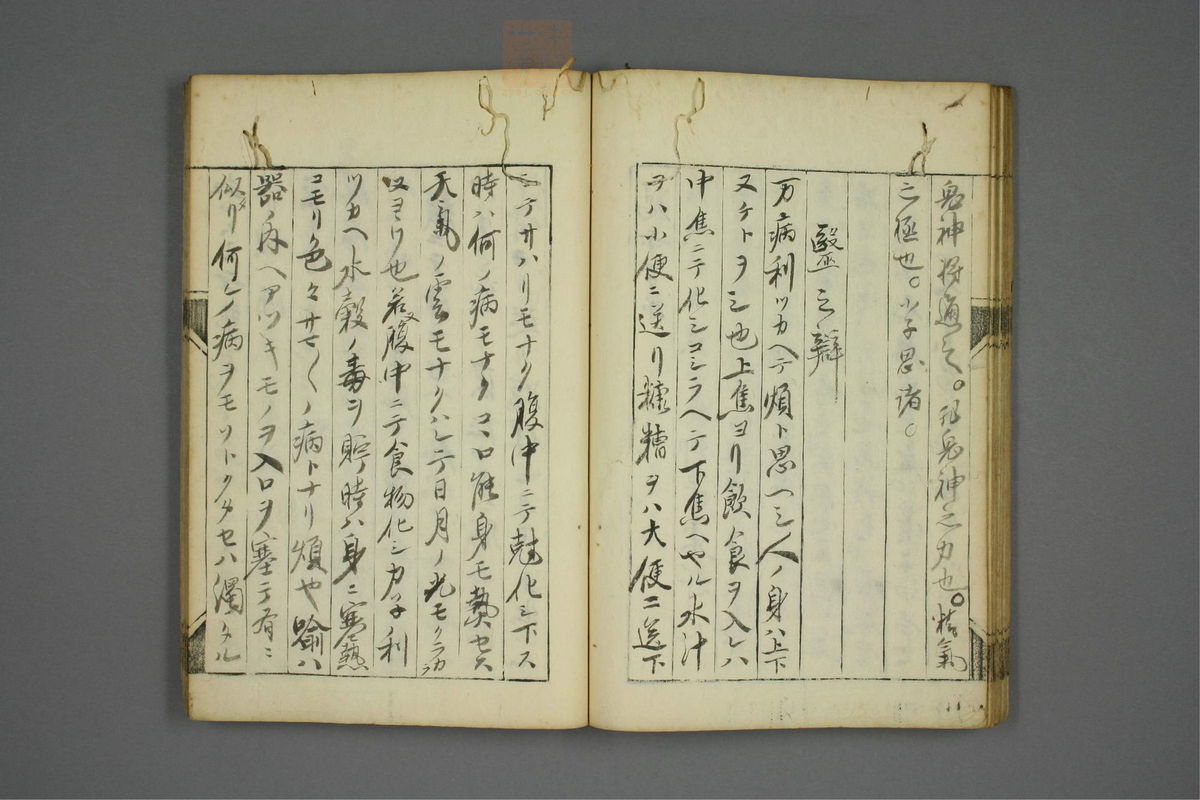 鬼神将通之。非鬼神之力也。精氣
之極也。少子思诸。
醫之辯
万病利ツカヘテ煩ト思ヘシ人ノ身ハ上下
ヌケトヲシ也上焦ヨリ飲食ヲ入レハ
中焦ニテ化シコシラヘテ下焦ヘヤル水汁
ヲハ小便ニ送リ糠糟ヲハ大便ニ送下
シテサハリモナク腹中ニテ尅化シ下ス
時ハ何ノ病モナクコヽロ能身モ熱セス
天氣ノ雲モナクハレテ日月ノ光モクラカラ
ヌヨリ也若腹中ニテ食物化シカ子利
ツカヘ水穀ノ毒ヲ貯ル時ハ身ニ寒熱
コモリ色々サマ〱ノ病トナリ煩ヤ喩ハ
器ノ内ヘアツキモノヲ入口ヲ塞テ有ニ
似タリ何レノ病ヲモソトクタセハ濁タル